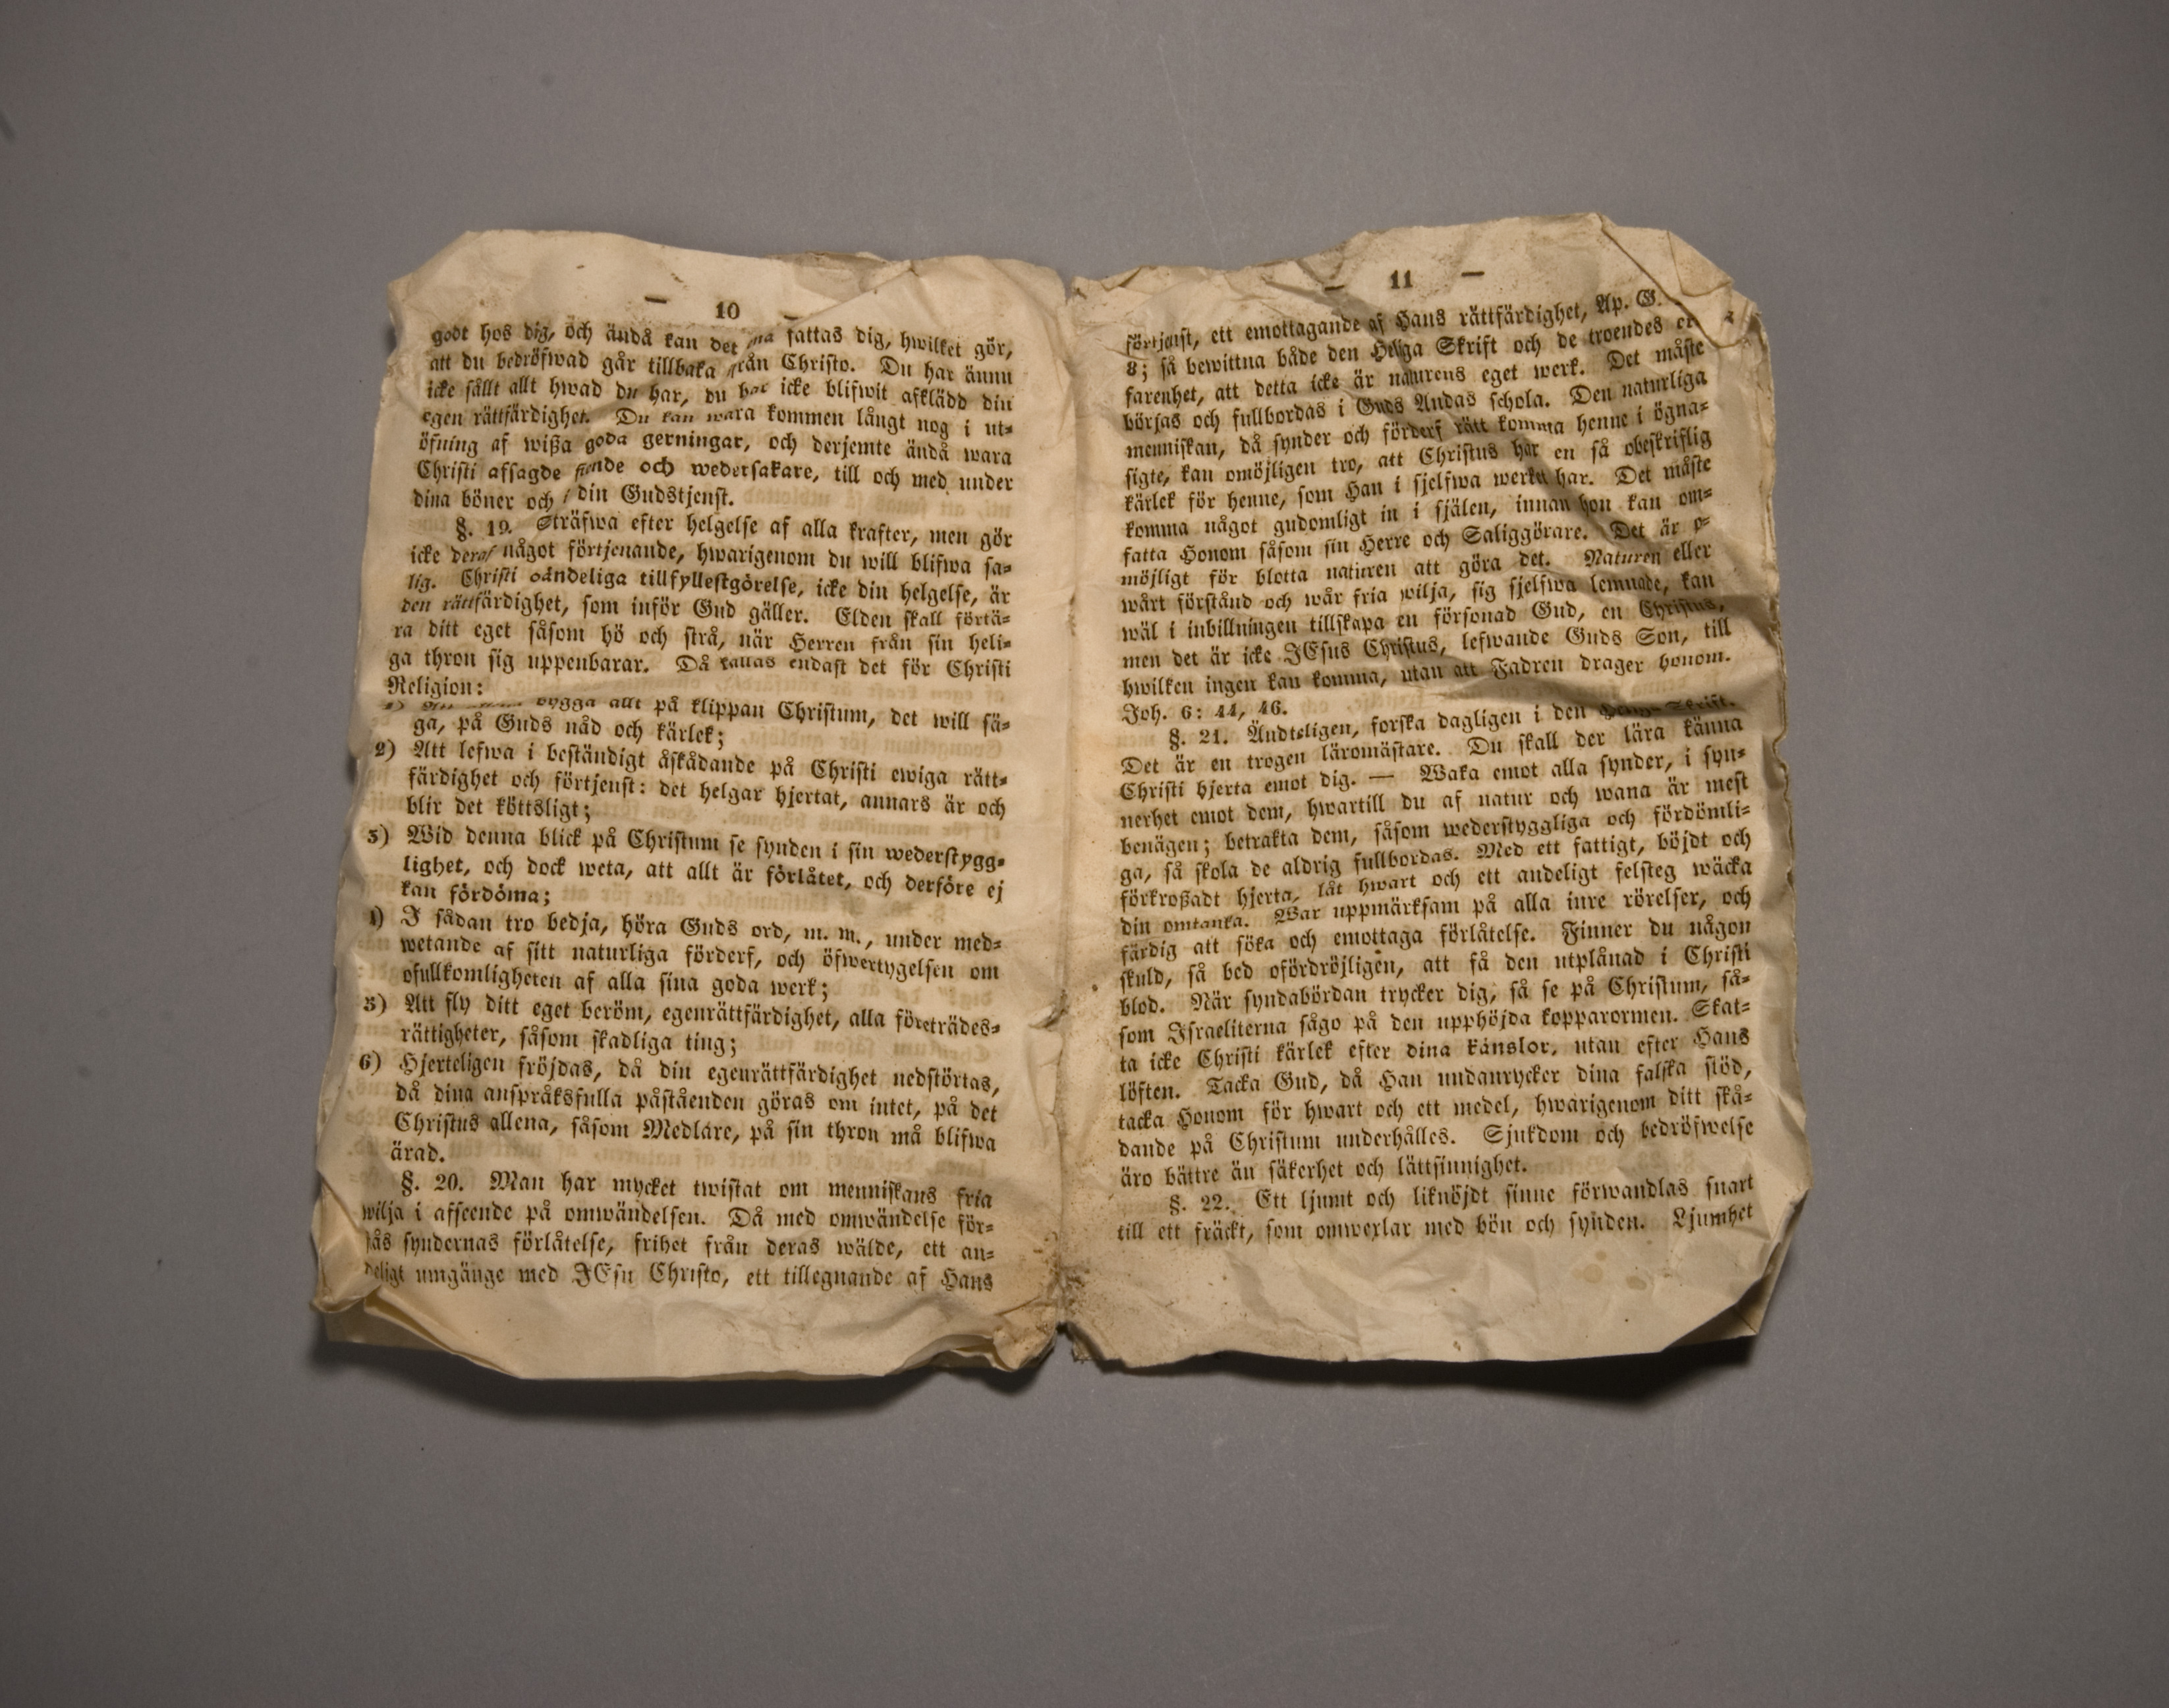 — 10 —
godt hos dig, och ändå kan det ena fattas dig, hwilket gör,
att du bedröfwad går tillbaka från Christo. Du har ännu
icke sållt allt hwad du har, du har icke blifwit afklädd din
egen rättfärdighet. Du kan wara kommen långt nog i ut-
öfning af wißa goda gerningar, och derjemte ändå wara
Christi afsagde fiende och wedersakare, till och med under
dina böner och i din Gudstjenst.
§. 19. Sträfwa efter helgelse af alla krafter, men gör
icke deraf något förtjenande, hwarigenom du will blifwa sa-
lig. Christi oändeliga tillfyllestgörelse, icke din helgelse, är
den rättfärdighet, som inför Gud gäller. Elden skall förtä-
ra ditt eget såsom hö och strå, när Herren från sin heli-
ga thron sig uppenbarar. Då endast det för Christi
Religion:
bygga allt på klippan Christum, det will sä-
ga, på Guds nåd och kärlek;
2) Att lefwa i beständigt åskådande på Christi ewiga rätt-
färdighet och förtjenst: det helgar hjertat, annars är och
blir det köttsligt;
3) Wid denna blick på Christum se synden i sin wederstygg-
lighet, och dock weta, att allt är förlåtet, och derföre ej
kan fördöma;
4) I sådan tro bedja, höra Guds ord, m. m., under med-
wetande af sitt naturliga förderf, och öfwertygelsen om
ofullkomligheten af alla sina goda werk;
5) Att fly ditt eget beröm, egenrättfärdighet, alla företrädes-
rättigheter, såsom skadliga ting;
6) Hjerteligen fröjdas, då din egenrättfärdighet nedstörtas,
då dina anspråksfulla påståenden göras om intet, på det
Christus allena, såsom Medlare, på sin thron må blifwa
ärad.
§. 20. Man har mycket twistat om menniskans fria
wilja i afseende på omwändelsen. Då med omwändelse för-
sås syndernas förlåtelse, frihet från deras wälde, ett an-
deligt umgänge med JEsu Christo, ett tillegnande af Hans
— 11 —
förtjenst, ett emottagande af Hans rättfärdighet, Ap. G.
8; så bewittna både den Heliga Skrift och de troendes er-
farenhet, att detta icke är naturens eget werk. Det måste
börjas och fullbordas i Guds Andas schola. Den naturliga
menniskan, då synder och förderf rätt komma henne i ögna-
sigte, kan omöjligen tro, att Christus har en så obeskriflig
kärlek för henne, som Han i sjelfwa werket har. Det måste
komma något gudomligt in i själen, innan hon kan om-
fatta Honom såsom sin Herre och Saliggörare. Det är o-
möjligt för blotta naturen att göra det. Naturen eller
wårt förstånd och wår fria wilja, sig sjelfwa lemnade, kan
wäl i inbillningen tillskapa en försonad Gud, en Christus,
men det är icke JEsus Christus, lefwande Guds Son, till
hwilken ingen kan komma, utan att Fadren drager honom.
Joh. 6: 44, 46.
§. 21. Ändteligen, forska dagligen i den Heliga Skrift.
Det är en trogen läromästare. Du skall der lära känna
Christi hjerta emot dig. — Waka emot alla synder, i syn-
nerhet emot dem, hwartill du af natur och wana är mest
benägen; betrakta dem, såsom wederstyggliga och fördömli-
ga, så skola de aldrig fullbordas. Med ett fattigt, böjdt och
förkroßadt hjerta, låt hwart och ett andeligt felsteg wäcka
din omtanka. War uppmärksam på alla inre rörelser, och
färdig att söka och emottaga förlåtelse. Finner du någon
skuld, så bed ofördröjligen, att få den utplånad i Christi
blod. När syndabördan trycker dig, så se på Christum, så-
som Israeliterna sågo på den upphöjda kopparormen. Skat-
ta icke Christi kärlek efter dina känslor, utan efter Hans
löften. Tacka Gud, då Han undanrycker dina falska stöd,
tacka Honom för hwart och ett medel, hwarigenom ditt skå-
dande på Christum underhålles. Sjukdom och bedröfwelse
äro bättre än säkerhet och lättsinnighet.
§. 22. Ett ljumt och liknöjdt sinne förwandlas snart
till ett fräckt, som omwexlar med bön och synden. Ljumhet